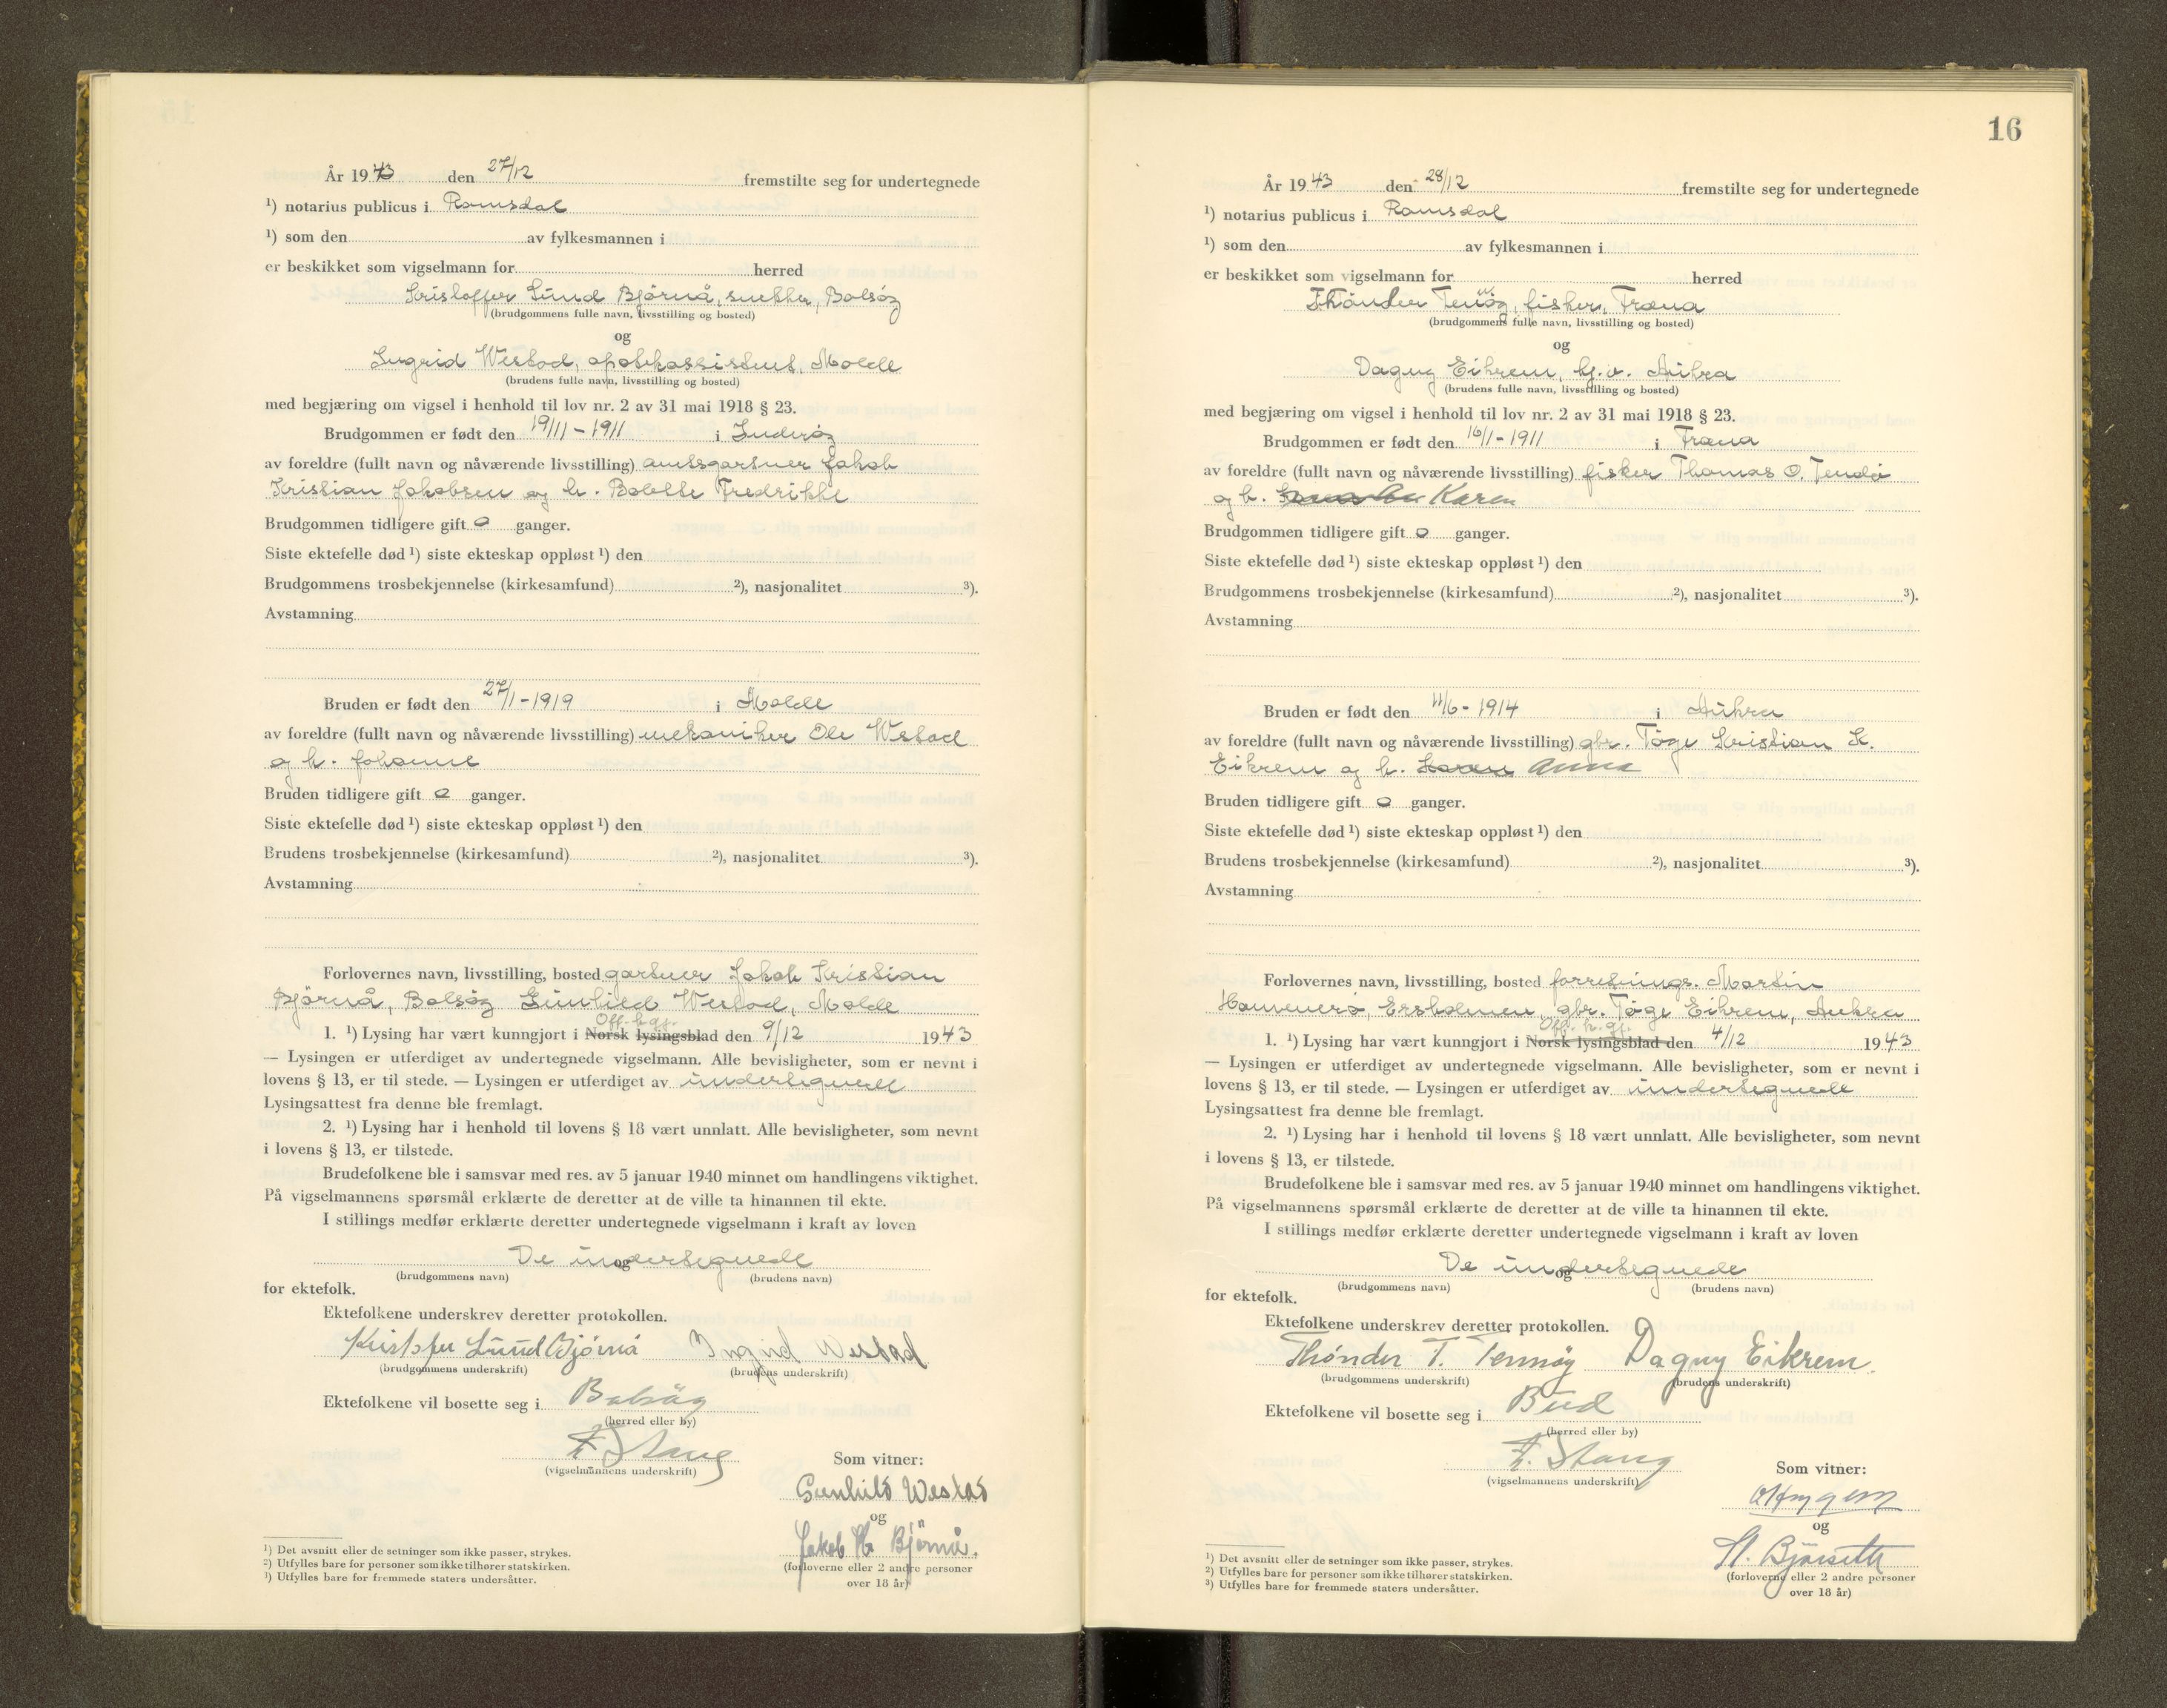 År 1943 den 27/12 fremstilte seg for undertegnede
¹) notarius publicus i Romsdal
¹) som den av fylkesmannen i
er beskikket som vigselmann for herred
Kristoffer Lund Bjørnå, snekker, Bolsøy
(brudgommens fulle navn, livsstilling og bosted)
og
Ingrid Westad, apotekassistent, Molde
(brudens fulle navn, livsstilling og bosted)
med begjæring om vigsel i henhold til lov nr. 2 av 31 mai 1918 § 23.
Brudgommen er født den 19/11 - 1911 i Inderøy
av foreldre (fullt navn og nåværende livsstilling) amtsgartner Jakob
Kristian Jakobsen og h. Bolette Fredrikke
Brudgommen tidligere gift 0 ganger.
Siste ektefelle død ¹) siste ekteskap oppløst ¹) den
Brudgommens trosbekjennelse (kirkesamfund) ²), nasjonalitet ³).
Avstamning
Bruden er født den 27/1 - 1919 i Molde
av foreldre (fullt navn og nåværende livsstilling) mekaniker Ole Westad
og h. Johanne
Bruden tidligere gift 0 ganger.
Siste ektefelle død ¹) siste ekteskap oppløst ¹) den
Brudens trosbekjennelse (kirkesamfund) ²), nasjonalitet ³).
Avstamning
Forlovernes navn, livsstilling, bosted gartner Jakob Kristian
Bjørnå, Bolsøy Gunhild Westad, Molde
Off. h. gj.
1. ¹) Lysing har vært kunngjort i Norsk lysingsblad den 9/12 1943
— Lysingen er utferdiget av undertegnede vigselmann. Alle bevisligheter, som er nevnt i
lovens § 13, er til stede. — Lysingen er utferdiget av undertegnede
Lysingsattest fra denne ble fremlagt.
2. ¹) Lysing har i henhold til lovens § 18 vært unnlatt. Alle bevisligheter, som nevnt
i lovens § 13, er tilstede.
Brudefolkene ble i samsvar med res. av 5 januar 1940 minnet om handlingens viktighet.
På vigselmannens spørsmål erklærte de deretter at de ville ta hinannen til ekte.
I stillings medfør erklærte deretter undertegnede vigselmann i kraft av loven
De undertegnede
og
(brudgommens navn) (brudens navn)
for ektefolk.
Ektefolkene underskrev deretter protokollen.
Kristoffer Lund Bjørnå Ingrid Westad
(brudgommens underskrift) (brudens underskrift)
Ektefolkene vil bosette seg i Bolsøy
(herred eller by)
F. Stang
(vigselmannens underskrift)
Som vitner:
Gunhild Westad
og
Jakob Kr Bjørnå.
(forloverne eller 2 andre personer
over 18 år)
¹) Det avsnitt eller de setninger som ikke passer, strykes.
²) Utfylles bare for personer som ikke tilhører statskirken.
³) Utfylles bare for fremmede staters undersåtter.
16
År 1943 den 28/12 fremstilte seg for undertegnede
¹) notarius publicus i Romsdal
¹) som den av fylkesmannen i
er beskikket som vigselmann for herred
Thønder Tennøy, fisker, Fræna
(brudgommens fulle navn, livsstilling og bosted)
og
Dagny Eikrem, hj.v. Aukra
(brudens fulle navn, livsstilling og bosted)
med begjæring om vigsel i henhold til lov nr. 2 av 31 mai 1918 § 23.
Brudgommen er født den 16/1 - 1911 i Fræna
av foreldre (fullt navn og nåværende livsstilling) fisker Thomas O. Tendø
og h. Karen
Brudgommen tidligere gift 0 ganger.
Siste ektefelle død ¹) siste ekteskap oppløst ¹) den
Brudgommens trosbekjennelse (kirkesamfund) ²), nasjonalitet ³).
Avstamning
Bruden er født den 11/6 - 1914 i Aukra
av foreldre (fullt navn og nåværende livsstilling) gbr. Tøge Kristian K.
Eikrem og h. Karen Anna
Bruden tidligere gift 0 ganger.
Siste ektefelle død ¹) siste ekteskap oppløst ¹) den
Brudens trosbekjennelse (kirkesamfund) ²), nasjonalitet ³).
Avstamning
Forlovernes navn, livsstilling, bosted forretnings. Martin
Hammerø, Ersholmen, gbr. Tøge Eikrem, Aukra
Off. h. gj.
1. ¹) Lysing har vært kunngjort i Norsk lysingsblad den 4/12 1943
— Lysingen er utferdiget av undertegnede vigselmann. Alle bevisligheter, som er nevnt i
lovens § 13, er til stede. — Lysingen er utferdiget av undertegnede
Lysingsattest fra denne ble fremlagt.
2. ¹) Lysing har i henhold til lovens § 18 vært unnlatt. Alle bevisligheter, som nevnt
i lovens § 13, er tilstede.
Brudefolkene ble i samsvar med res. av 5 januar 1940 minnet om handlingens viktighet.
På vigselmannens spørsmål erklærte de deretter at de ville ta hinannen til ekte.
I stillings medfør erklærte deretter undertegnede vigselmann i kraft av loven
De undertegnede
og
(brudgommens navn) (brudens navn)
for ektefolk.
Ektefolkene underskrev deretter protokollen.
Thønder T. Tennøy Dagny Eikrem
(brudgommens underskrift) (brudens underskrift)
Ektefolkene vil bosette seg i Bud
(herred eller by)
F. Stang
(vigselmannens underskrift)
Som vitner:
og
St. Bjørseth
(forloverne eller 2 andre personer
over 18 år)
¹) Det avsnitt eller de setninger som ikke passer, strykes.
²) Utfylles bare for personer som ikke tilhører statskirken.
³) Utfylles bare for fremmede staters undersåtter.